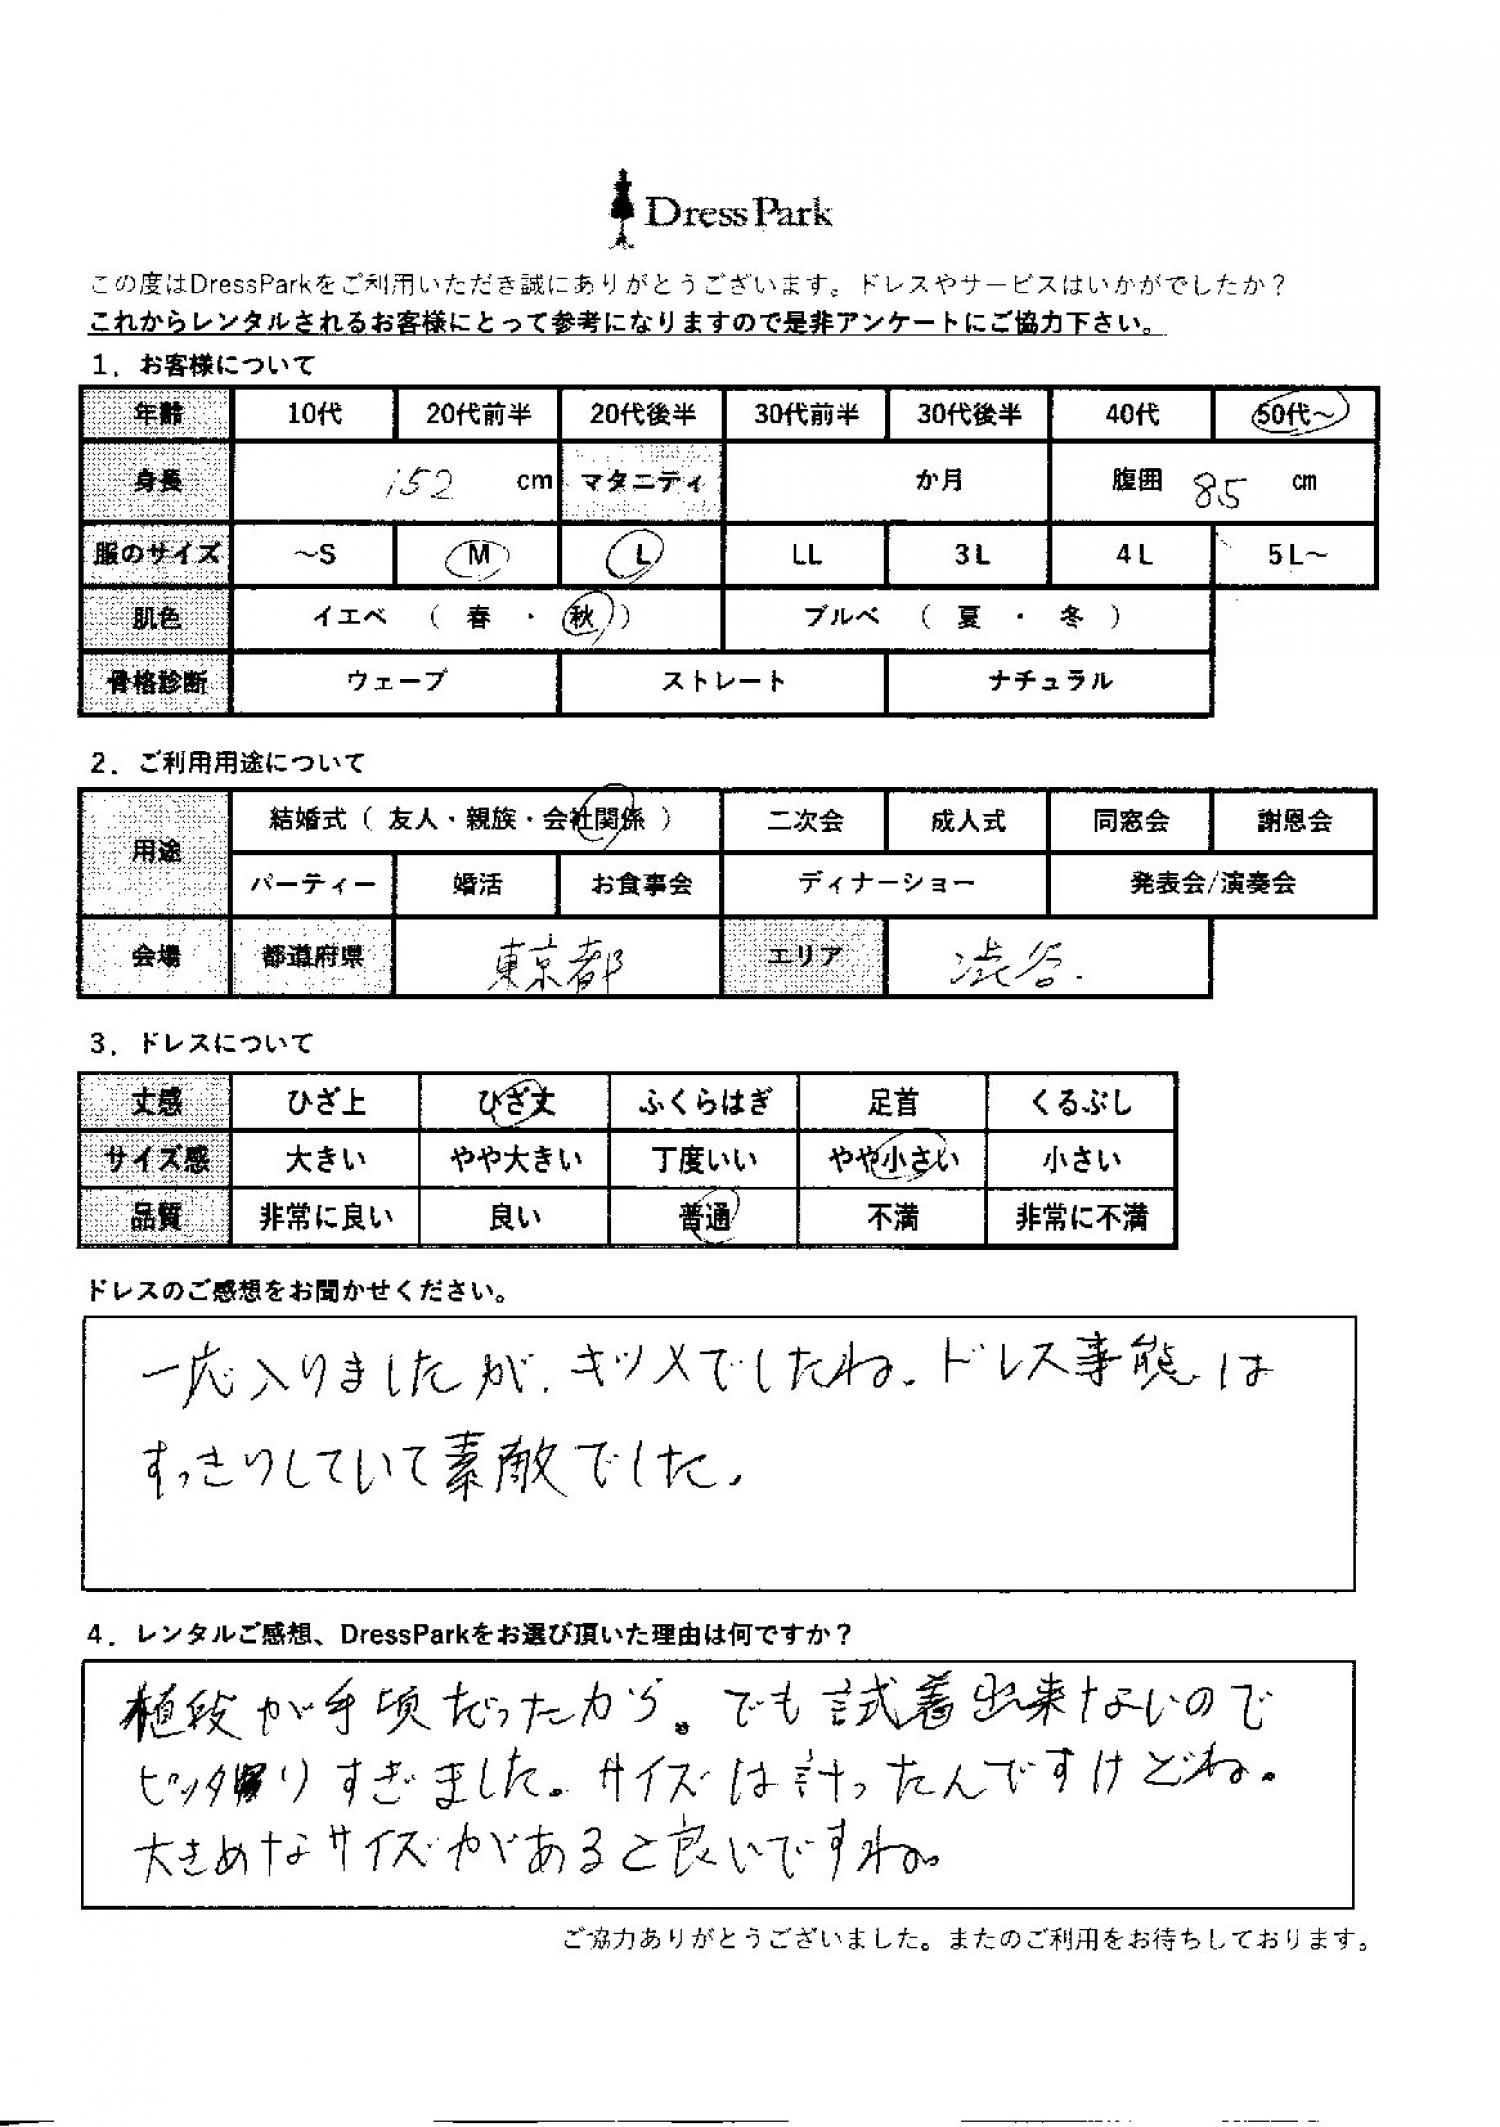 Dress Park
この度はDressParkをご利用いただき誠にありがとうございます。ドレスやサービスはいかがでしたか？
これからレンタルされるお客様にとって参考になりますので是非アンケートにご協力下さい。
1．お客様について
年齢 10代 20代前半 20代後半 30代前半 30代後半 40代 50代～
身長 152 cm マタニティ か月 腹囲 85 cm
服のサイズ ～S M L LL 3L 4L 5L～
肌色 イエベ （ 春 ・ 秋 ） ブルベ （ 夏 ・ 冬 ）
骨格診断 ウェーブ ストレート ナチュラル
2．ご利用用途について
用途 結婚式（ 友人・親族・会社関係 ） 二次会 成人式 同窓会 謝恩会
パーティー 婚活 お食事会 ディナーショー 発表会/演奏会
会場 都道府県 東京都 エリア 渋谷.
3．ドレスについて
丈感 ひざ上 ひざ丈 ふくらはぎ 足首 くるぶし
サイズ感 大きい やや大きい 丁度いい やや小さい 小さい
品質 非常に良い 良い 普通 不満 非常に不満
ドレスのご感想をお聞かせください。
一応入りましたが、キツメでしたね。ドレス事態は
すっきりしていて素敵でした。
4．レンタルご感想、DressParkをお選び頂いた理由は何ですか？
植段が手頃だったから。でも試着出来ないので
ピッタリすぎました。サイズは計ったんですけどね。
大きめなサイズがあると良いですね。
ご協力ありがとうございました。またのご利用をお待ちしております。